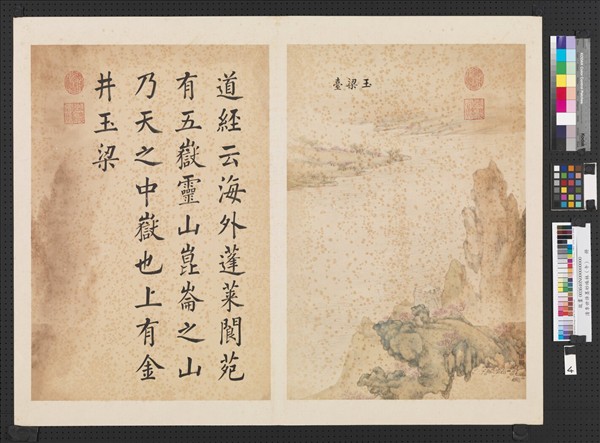 玉梁臺
道經云海外蓬萊閬苑
有五嶽靈山崑崙之山
乃天之中嶽也上有金
井玉梁
4